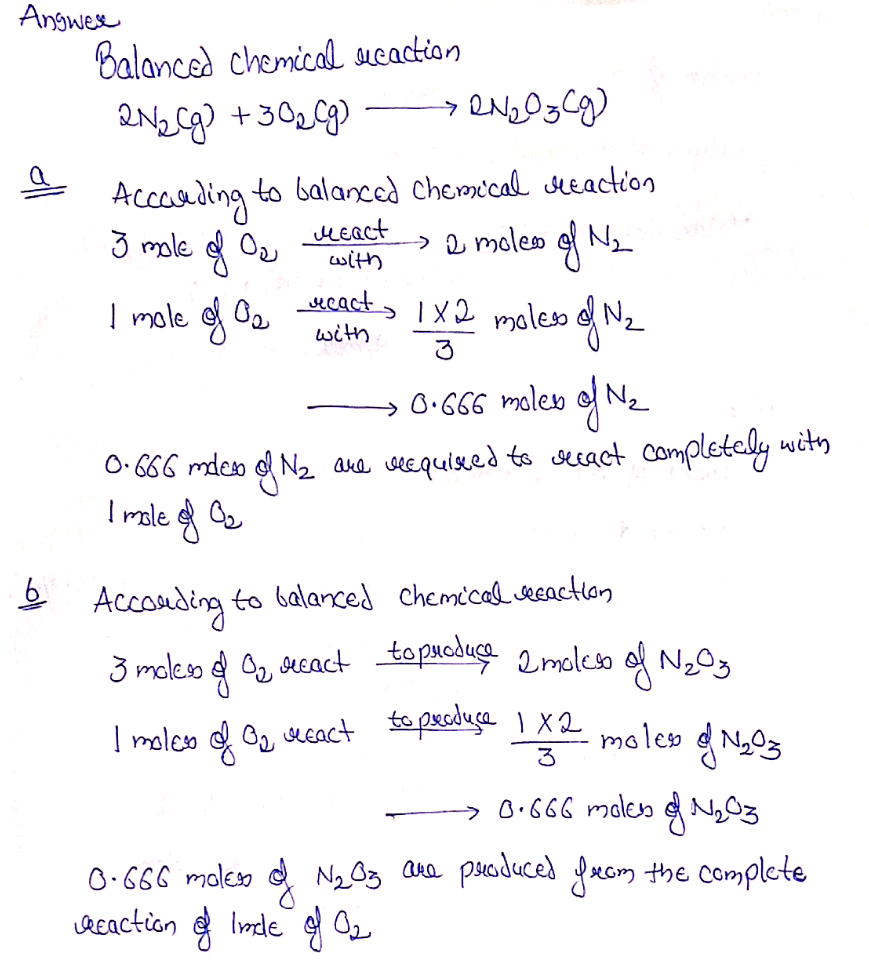 Answer
Balanced chemical reaction
2N₂(g) + 3O₂(g) ⟶ 2N₂O₃(g)
a According to balanced chemical reaction
3 mole of O₂ react with → 2 moles of N₂
1 mole of O₂ react with → 1×2/3 moles of N₂
⟶ 0.666 moles of N₂
0.666 moles of N₂ are required to react completely with
1 mole of O₂
b According to balanced chemical reaction
3 moles of O₂ react to produce → 2 moles of N₂O₃
1 moles of O₂ react to produce → 1×2/3 moles of N₂O₃
⟶ 0.666 moles of N₂O₃
0.666 moles of N₂O₃ are produced from the complete
reaction of 1 mole of O₂